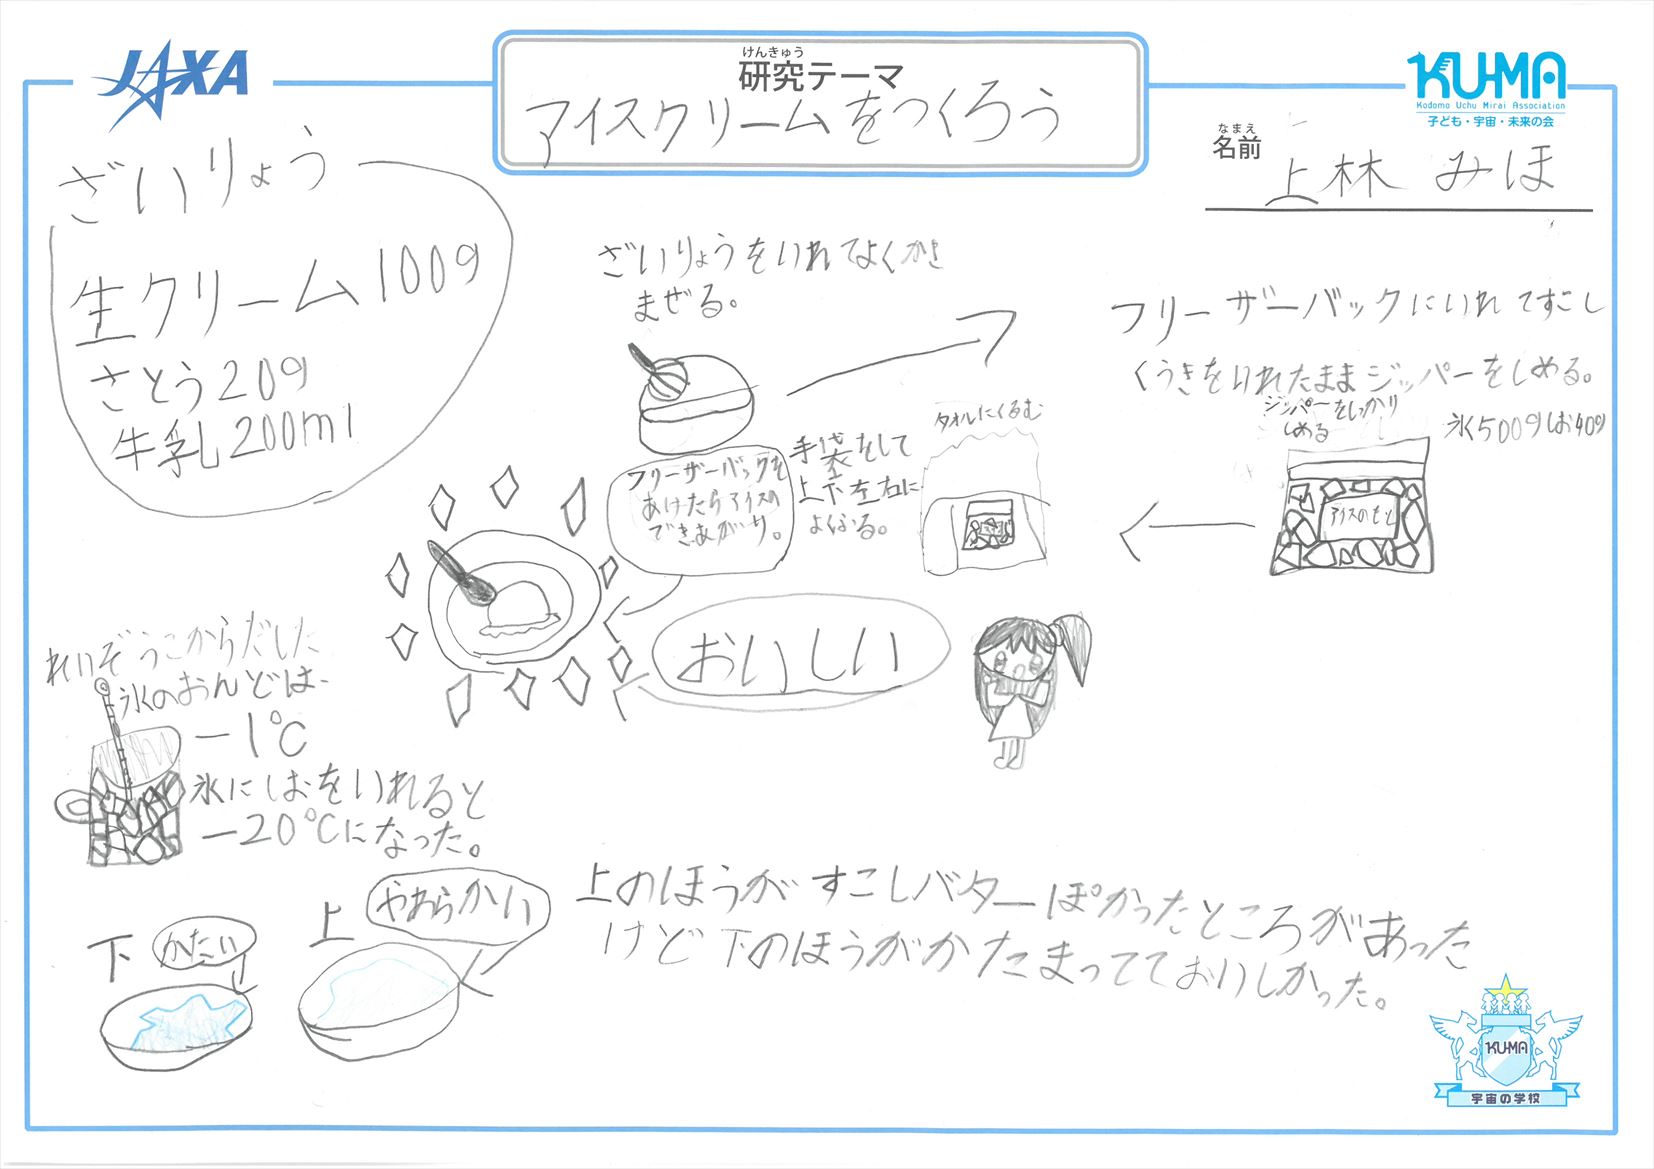 JAXA
けんきゅう
研究テーマ
アイスクリームをつくろう
KU-MA
Kodomo Uchu Mirai Association
子ども・宇宙・未来の会
なまえ
名前
上林 みほ
ざいりょう
生クリーム100g
さとう20g
牛乳200ml
ざいりょうをいれてよくかき
まぜる。
フリーザーバックにいれてすこし
くうきをいれたままジッパーをしめる。
ジッパーをしっかり
しめる
氷500gしお40g
アイスのもと
タオルにくるむ
手袋をして
上下左右に
よくふる。
フリーザーバックを
あけたらアイスの
できあがり。
おいしい
れいぞうこからだした
氷のおんどは、
−1℃
氷にしおをいれると
−20℃になった。
下 かたい
上 やわらかい
上のほうがすこしバターぽかったところがあった
けど下のほうがかたまってておいしかった。
KU-MA
宇宙の学校